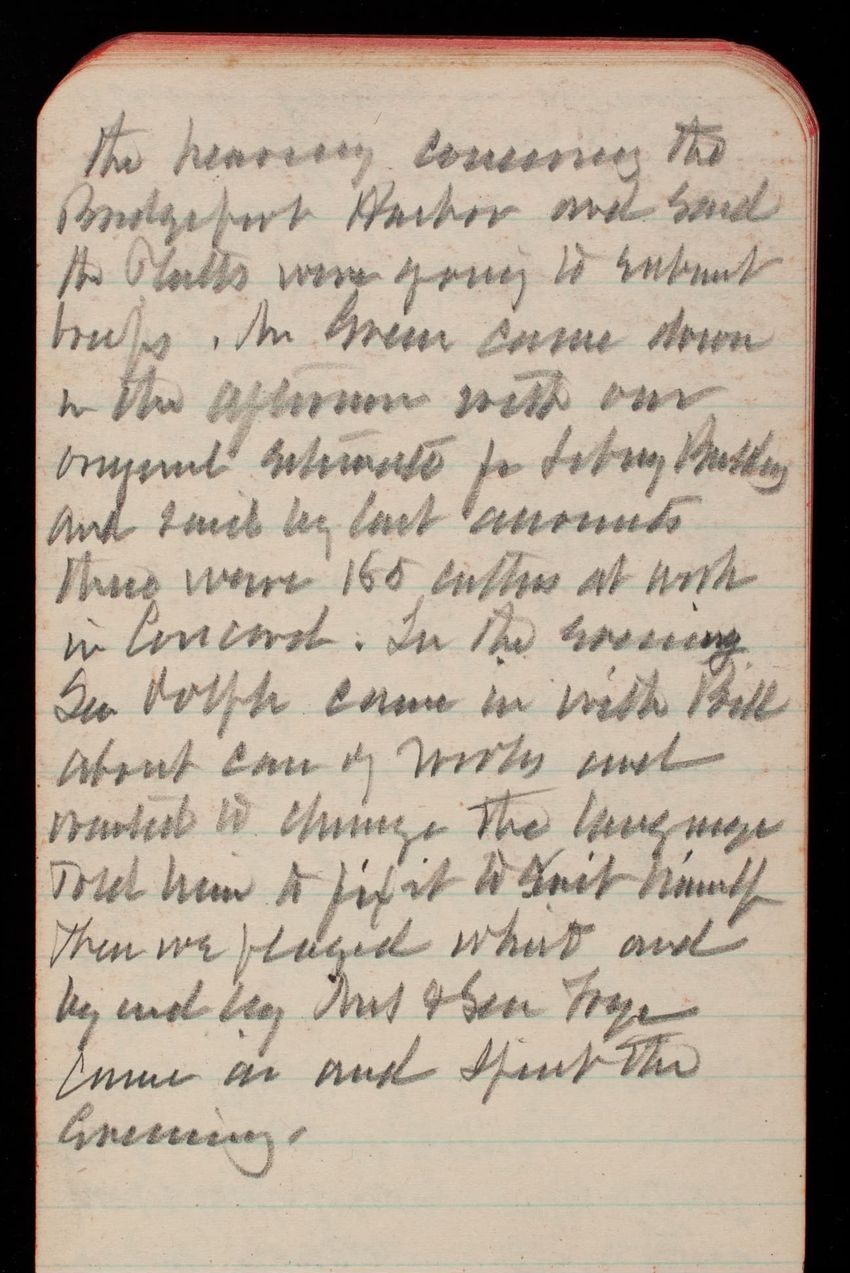 the hearing concerning the
Bridgeport Harbor and said
the Platts were going to submit
briefs. Mr Green came down
in the afternoon with our
original estimate for Library Building
and said by last accounts
there were 165 cutters at work
in Concord. In the evening
Sen Dolph came in with Bill
about care of works and
wanted to change the language
Told him to fix it to suit himself
Then we played whist and
by and by Mrs & Gen Frye
came in and spent the
Evening.